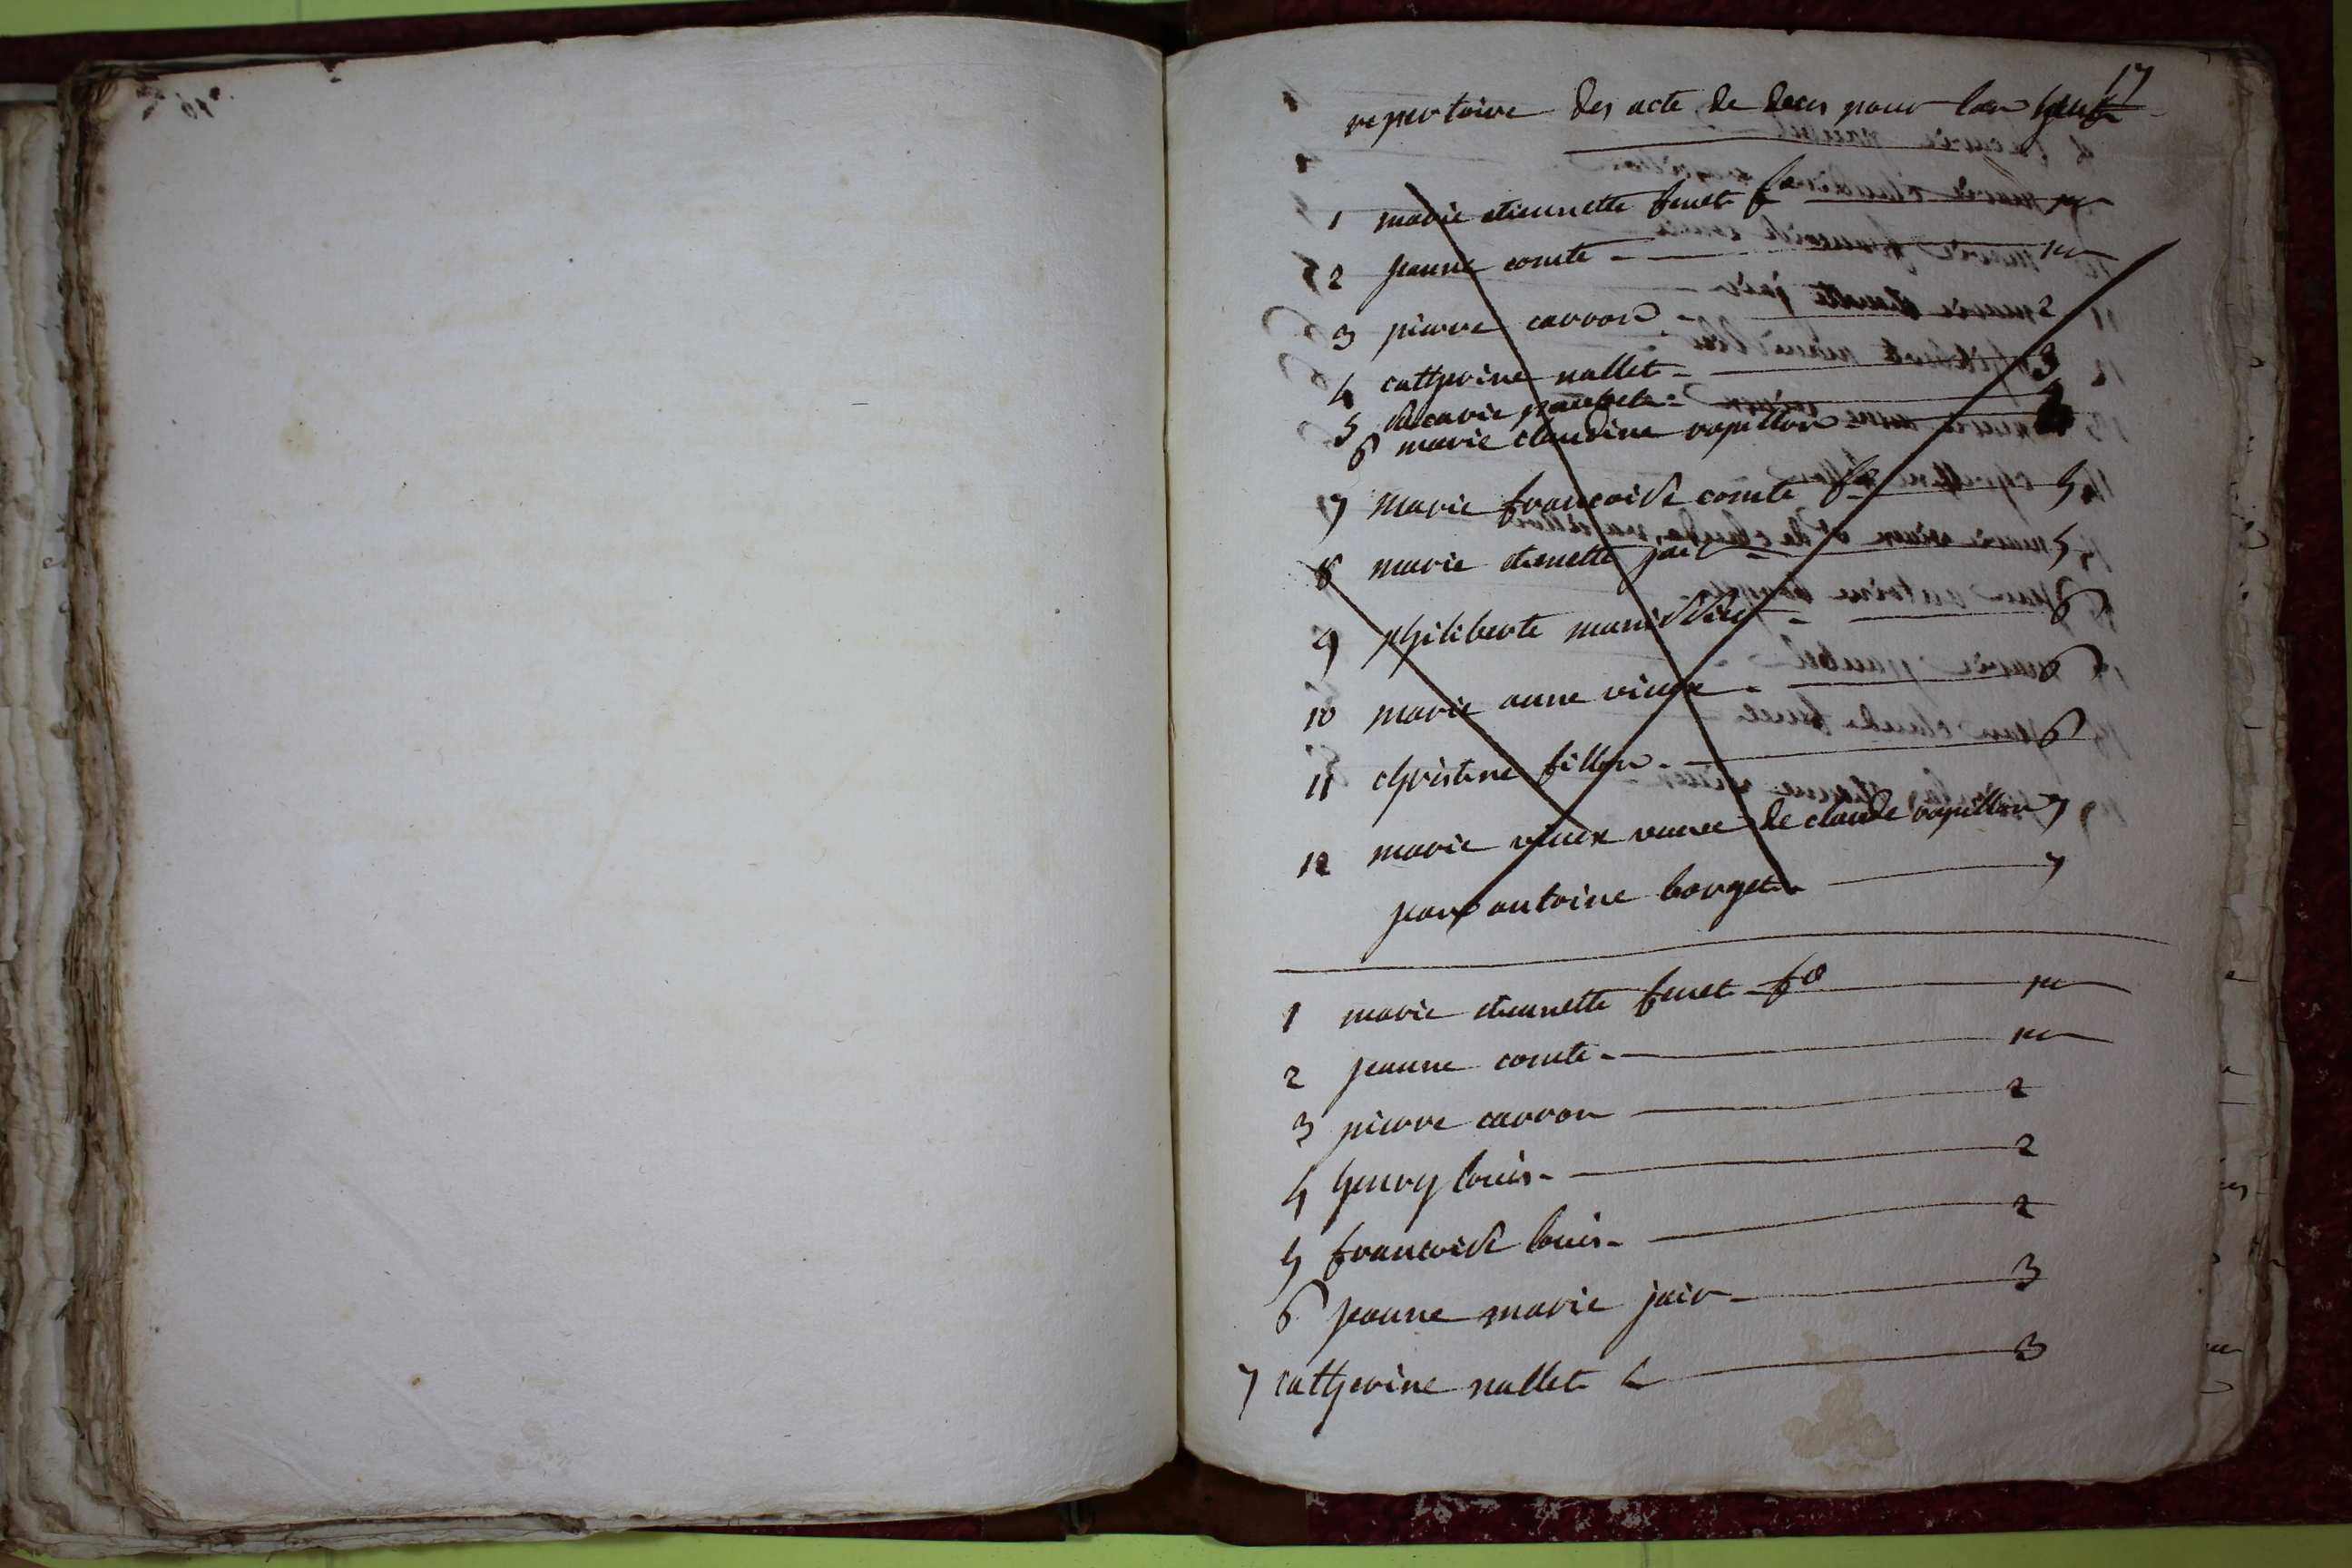 17
repertoire des acte de deces pour lan neuf
1 marie etiennette fenet f°
2 jeanne comte
3 pierre carron 2
4 catherine nallet 3
5 paubel
6 marie claudine rapillon 4
7 marie francoise comte f° 5
8 marie etiennette jai 5
9 philiberte 6
10 marie anne vieux 6
11 christine fillon 6
12 marie vieux veuve de claude rapillon 7
jean antoine borget 7
1 marie etiennette fenet f°
2 jeanne comte
3 pierre carron 2
4 henry louis 2
5 francoise louis 2
6 jeanne marie jair 3
7 catherine nallet 3